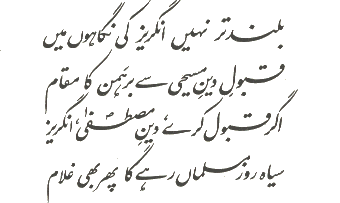 بلند تر نہیں انگریز کی نگاہوں میں
قبولِ دینِ مسیحی سے برہمن کا مقام
اگر قبول کرے، دینِ مصطفیٰؐ، انگریز
سیاہ روز مسلماں رہے گا پھر بھی غلام